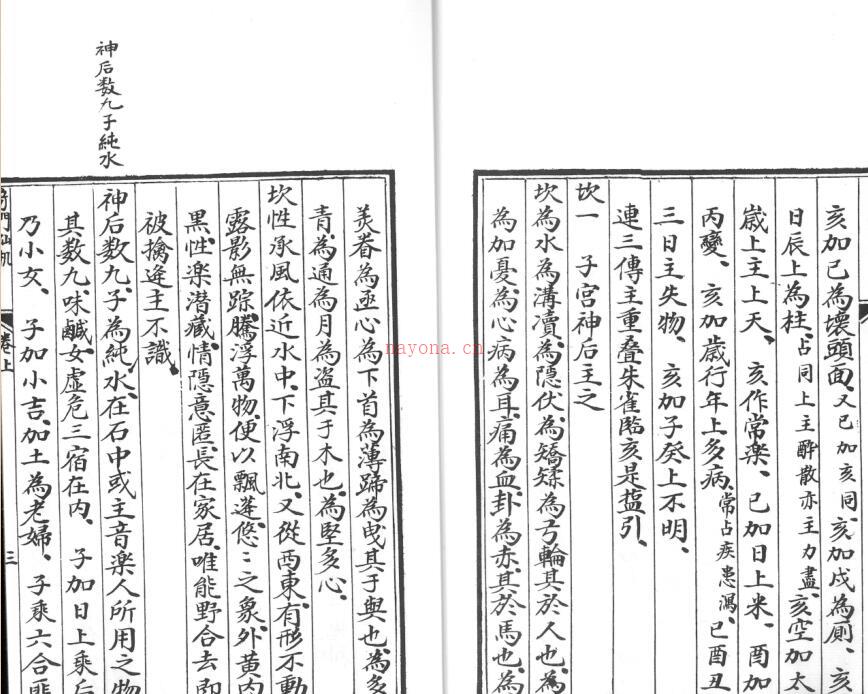 亥加巳為壞頭面、又巳加亥同、亥加戌為廁、亥
日辰上為柱、占同上主醉散亦主力盡、亥空加太
歲上主上天、亥作常樂、巳加日上米、酉加
丙變、亥加歲行年上多病、常占疾患瀉、巳酉丑
三日主失物、亥加子癸上不明、
連三傳主重叠朱雀臨亥是掹引、
坎一 子宮神后主之
坎為水為溝瀆、為隱伏為矯輮為弓輪其於人也、為
為加憂、為心病為耳、痛為血、卦為赤、其於馬也、為
美脊為亟心為下首為薄蹄為曳其于輿也、為多
青、為通為月為盗其于木也、為堅多心、
坎性承風依近水中、下浮南北、又從西東、有形不動
露影無踪、騰浮萬物、便以飄逢、悠〻之象、外黃内
黑、性樂潜藏、情隱意匿、長在家居、唯能野合去即
被擒逄主不識、
神后数九、子為純水、在石中或主音樂人所用之物
其数九、味鹹、女虚危三宿在内、子加日上乘后
乃小女、子加小吉、加土為老婦、子乘六合匪
神后数九子純水
卷上
三
nayona.cn